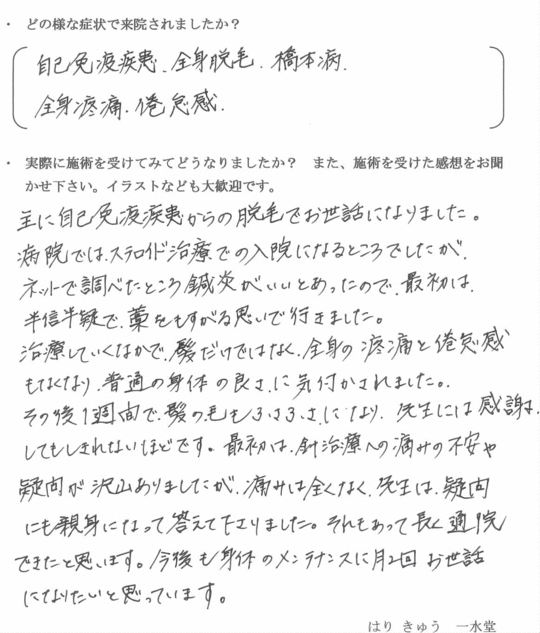 ・ どの様な症状で来院されましたか？
自己免疫疾患、全身脱毛、橋本病、
全身疼痛、倦怠感、
・ 実際に施術を受けてみてどうなりましたか？　また、施術を受けた感想をお聞
かせ下さい。イラストなども大歓迎です。
主に自己免疫疾患からの脱毛でお世話になりました。
病院では、ステロイド治療での入院になるところでしたが、
ネットで調べたところ鍼灸がいいとあったので、最初は、
半信半疑で、藁をもすがる思いで行きました。
治療していくなかで、髪だけではなく、全身の疼痛と倦怠感
もなくなり、普通の身体の良さに気付かされました。
その後1週間で、髪の毛もふさふさになり、先生には感謝
してもしきれないほどです。最初は、針治療への痛みの不安や
疑問が沢山ありましたが、痛みは全くなく、先生は、疑問
にも親身になって答えて下さりました。それもあって長く通院
できたと思います。今後も身体のメンテナンスに月2回お世話
になりたいと思っています。
はり きゅう　一水堂